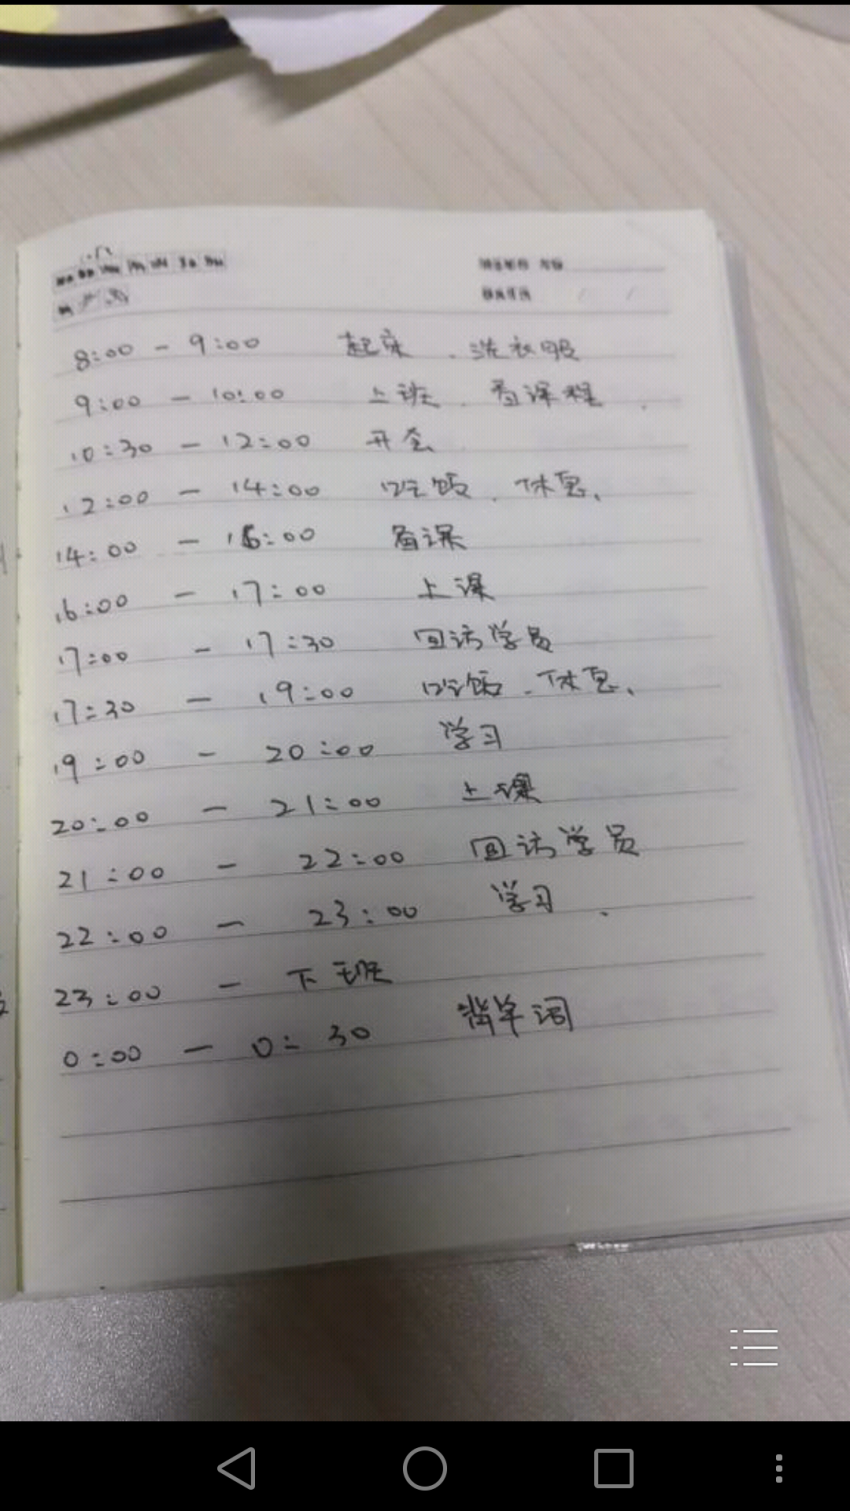 8:00 - 9:00 起床 、洗衣服
9:00 - 10:00 上班 、看课程 .
10:30 - 12:00 开会
12:00 - 14:00 吃饭 、休息、
14:00 - 16:00 备课
16:00 - 17:00 上课
17:00 - 17:30 回访学员
17:30 - 19:00 吃饭 、休息、
19:00 - 20:00 学习
20:00 - 21:00 上课
21:00 - 22:00 回访学员
22:00 - 23:00 学习 .
23:00 - 下班
0:00 - 0:30 背单词